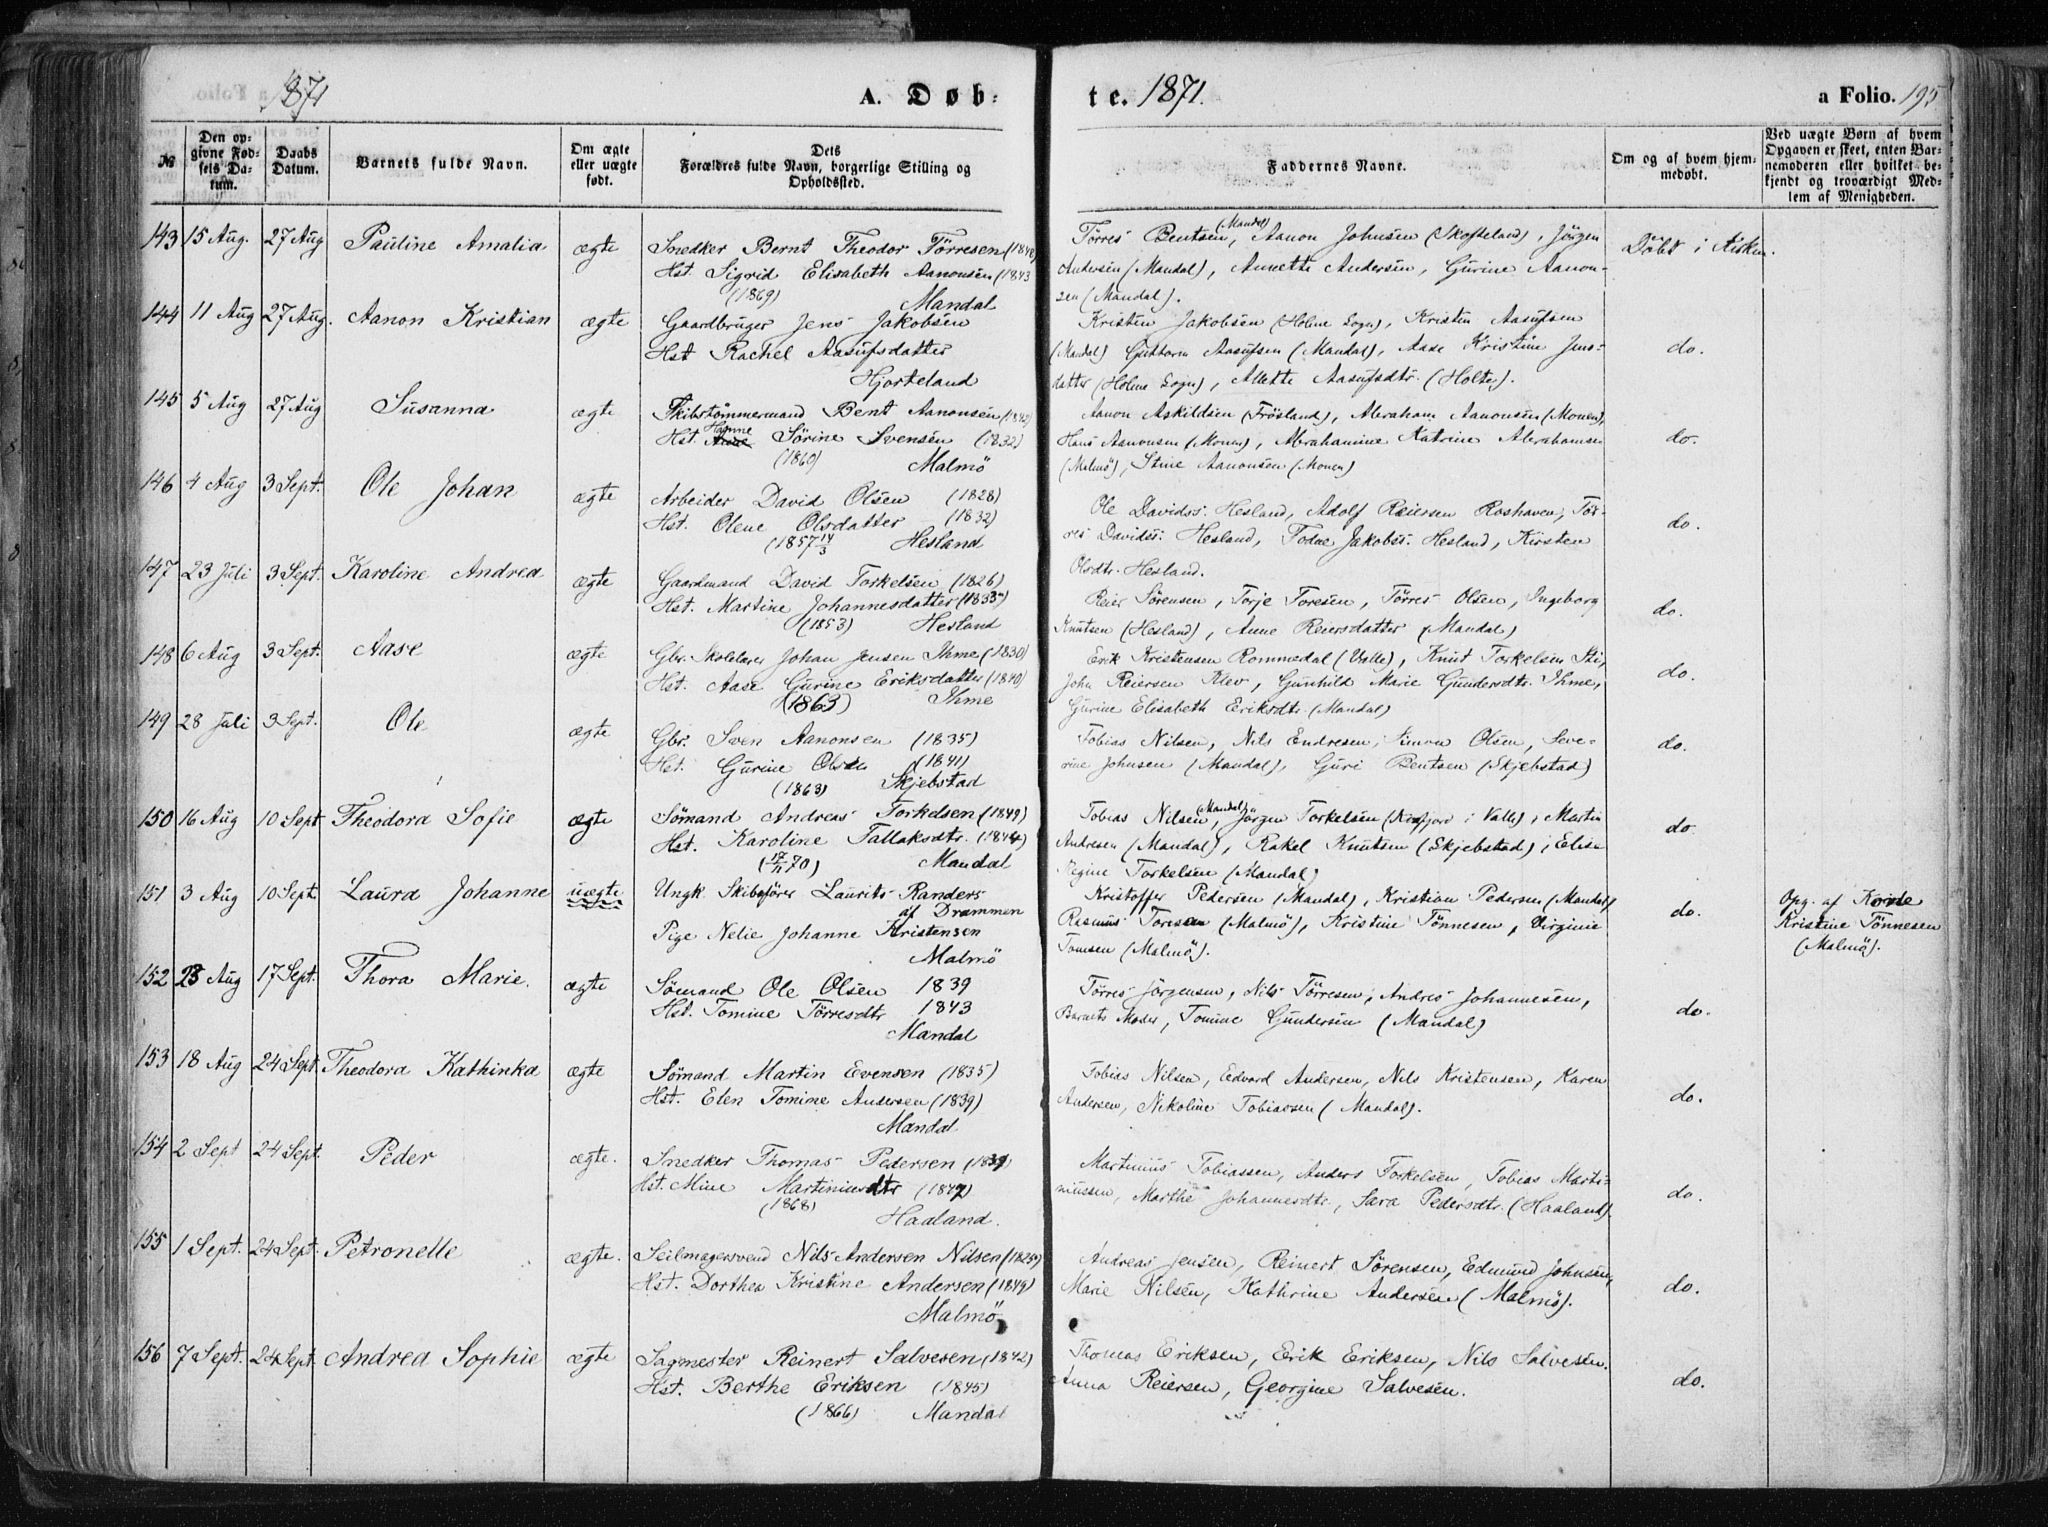 1871
A. Døb-
te. 1871.
a Folio. 195
№
Den op-
givne Fød-
sels Da-
tum.
Daabs
Datum.
Barnets fulde Navn.
Om ægte
eller uægte
født.
Dets
Forældres fulde Navn, borgerlige Stilling og
Opholdssted.
Faddernes Navne.
Om og af hvem hjem-
medøbt.
Ved uægte Børn af hvem
Opgaven er skeet, enten Bar-
nemoderen eller hvilket be-
kjendt og troværdigt Med-
lem af Menigheden.
143 15 Aug. 27 Aug Pauline Amalia ægte Snedker Bernt Theodor Törresen
Hst. Sigrid Elisabeth Aanonsen (1843
(1869) Mandal
Törres Bentsen (Mandal), Aanon Johnsen (Skofteland), Jörgen
Andersen (Mandal), Annette Andersen, Gurine Aanon-
sen (Mandal).
Döbt i Kirken.
144 11 Aug 27 Aug. Aanon Kristian ægte Gaardbruger Jens Jakobsen
Hst Rachel Aasufsdatter
Hjorteland
Kristen Jakobsen (Holme Sogn), Kristen Aasufsen
(Mandal) Guttorm Aasufsen (Mandal), Aase Kristine Jens-
datter (Holme Sogn), Alette Aasufsdtr. (Holte).
do.
145 5 Aug 27 Aug Susanna ægte Skibstömmermand Bent Aanonsen
Hst. Hanne Sörine Svensen (1832)
(1860) Malmö
Aanon Askildsen (Frösland), Abraham Aanonsen (Monen),
Hans Aanonsen (Monen), Abrahamine Katrine Abrahamsen
(Malmö), Stine Aanonsen (Monen)
do.
146 4 Aug 3 Sept. Ole Johan ægte Arbeider David Olsen (1828)
Hst. Olene Olsdatter (1832)
(1857 14/3) Hesland
Ole Davids: Hesland, Adolf Reiersen Roshaven, Tör-
res Davids: Hesland, Todne Jakobs: Hesland, Kirsten
Olsdtr. Hesland.
do.
147 23 Juli 3 Sept. Karoline Andrea ægte Gaardmand David Torkelsen (1826)
Hst. Martine Johannesdatter
(1853) Hesland
Reier Sörensen, Torje Toresen, Törres Olsen, Ingeborg
Knutsen (Hesland), Anne Reiersdatter (Mandal)
do.
148 6 Aug 3 Sept. Aase ægte Gbr. Skolelærer Johan Jensen Ihme (1830)
Hst. Aase Gurine Eriksdatter (1840)
(1863) Ihme
Erik Kristensen Rommedal (Valle), Knut Torkelsen Sti,
John Reiersen Klev, Gunhild Marie Gundersdtr. Ihme,
Gurine Elisabeth Eriksdtr. (Mandal)
do.
149 28 Juli 3 Sept. Ole ægte Gbr. Sven Aanonsen (1835)
Hst. Gurine Olsen (1841)
(1863) Skjebstad
Tobias Nilsen, Nils Endresen, Simon Olsen, Seve-
rine Johnsen (Mandal), Guri Bentsen (Skjebstad)
do.
150 16 Aug 10 Sept Theodora Sofie ægte Sömand Andreas Torkelsen (1849)
Hst. Karoline Tallaksdtr.
70) Mandal
Tobias Nilsen (Mandal), Jörgen Torkelsen i Valle), Martin
Andresen (Mandal), Rakel Knutsen (Skjebstad), Elise
Regine Torkelsen (Mandal)
do.
151 3 Aug 10 Sept. Laura Johanne uægte Ungk Skibsförer Laurits Randers
af Drammen
Pige Nelie Johanne Kristensen
Malmö
Kristoffer Pedersen (Mandal), Kristian Pedersen (Mandal)
Rasmus Toresen (Malmö), Kristine Tönnesen, Virginie
Tomsen (Malmö).
do.
Opg. af
Kristine Tönnesen
(Malmö).
152 23 Aug 17 Sept. Thora Marie. ægte Sömand Ole Olsen 1839
Hst. Tomine Törresdtr 1843
Mandal
Törres Jörgensen, Nils Törresen, Andreas Johannesen,
Barnets Moder, Tomine Gundersen (Mandal)
do.
153 18 Aug 24 Sept. Theodora Kathinka ægte Sömand Martin Evensen (1835)
Hst. Elen Tomine Andersen (1839)
Mandal
Tobias Nilsen, Edvard Andersen, Nils Kristensen, Karen
Andersen, Nikoline Tobiassen (Mandal).
do.
154 2 Sept 24 Sept. Peder ægte. Snedker Thomas Pedersen
Hst. Mine Martiniusdtr
(1868) Haaland.
Martinius Tobiassen, Anders Torkelsen, Tobias Marti-
niussen, Marthe Johannesdtr., Sara Pedersdtr. (Haaland).
do.
155 1 Sept. 24 Sept. Petronelle ægte. Seilmagersvend Nils Andersen Nilsen
Hst. Dorthea Kristine Andersen (1849)
Malmö
Andreas Jensen, Reinert Sörensen, Edmund Johnsen,
Marie Nilsen, Kathrine Andersen (Malmö).
do.
156 7 Sept. 24 Sept. Andrea Sophie ægte Sagmester Reinert Salvesen (1842)
Hst. Berthe Eriksen (1845)
(1866) Mandal
Thomas Eriksen, Erik Eriksen, Nils Salvesen.
Anna Reiersen, Georgine Salvesen.
do.